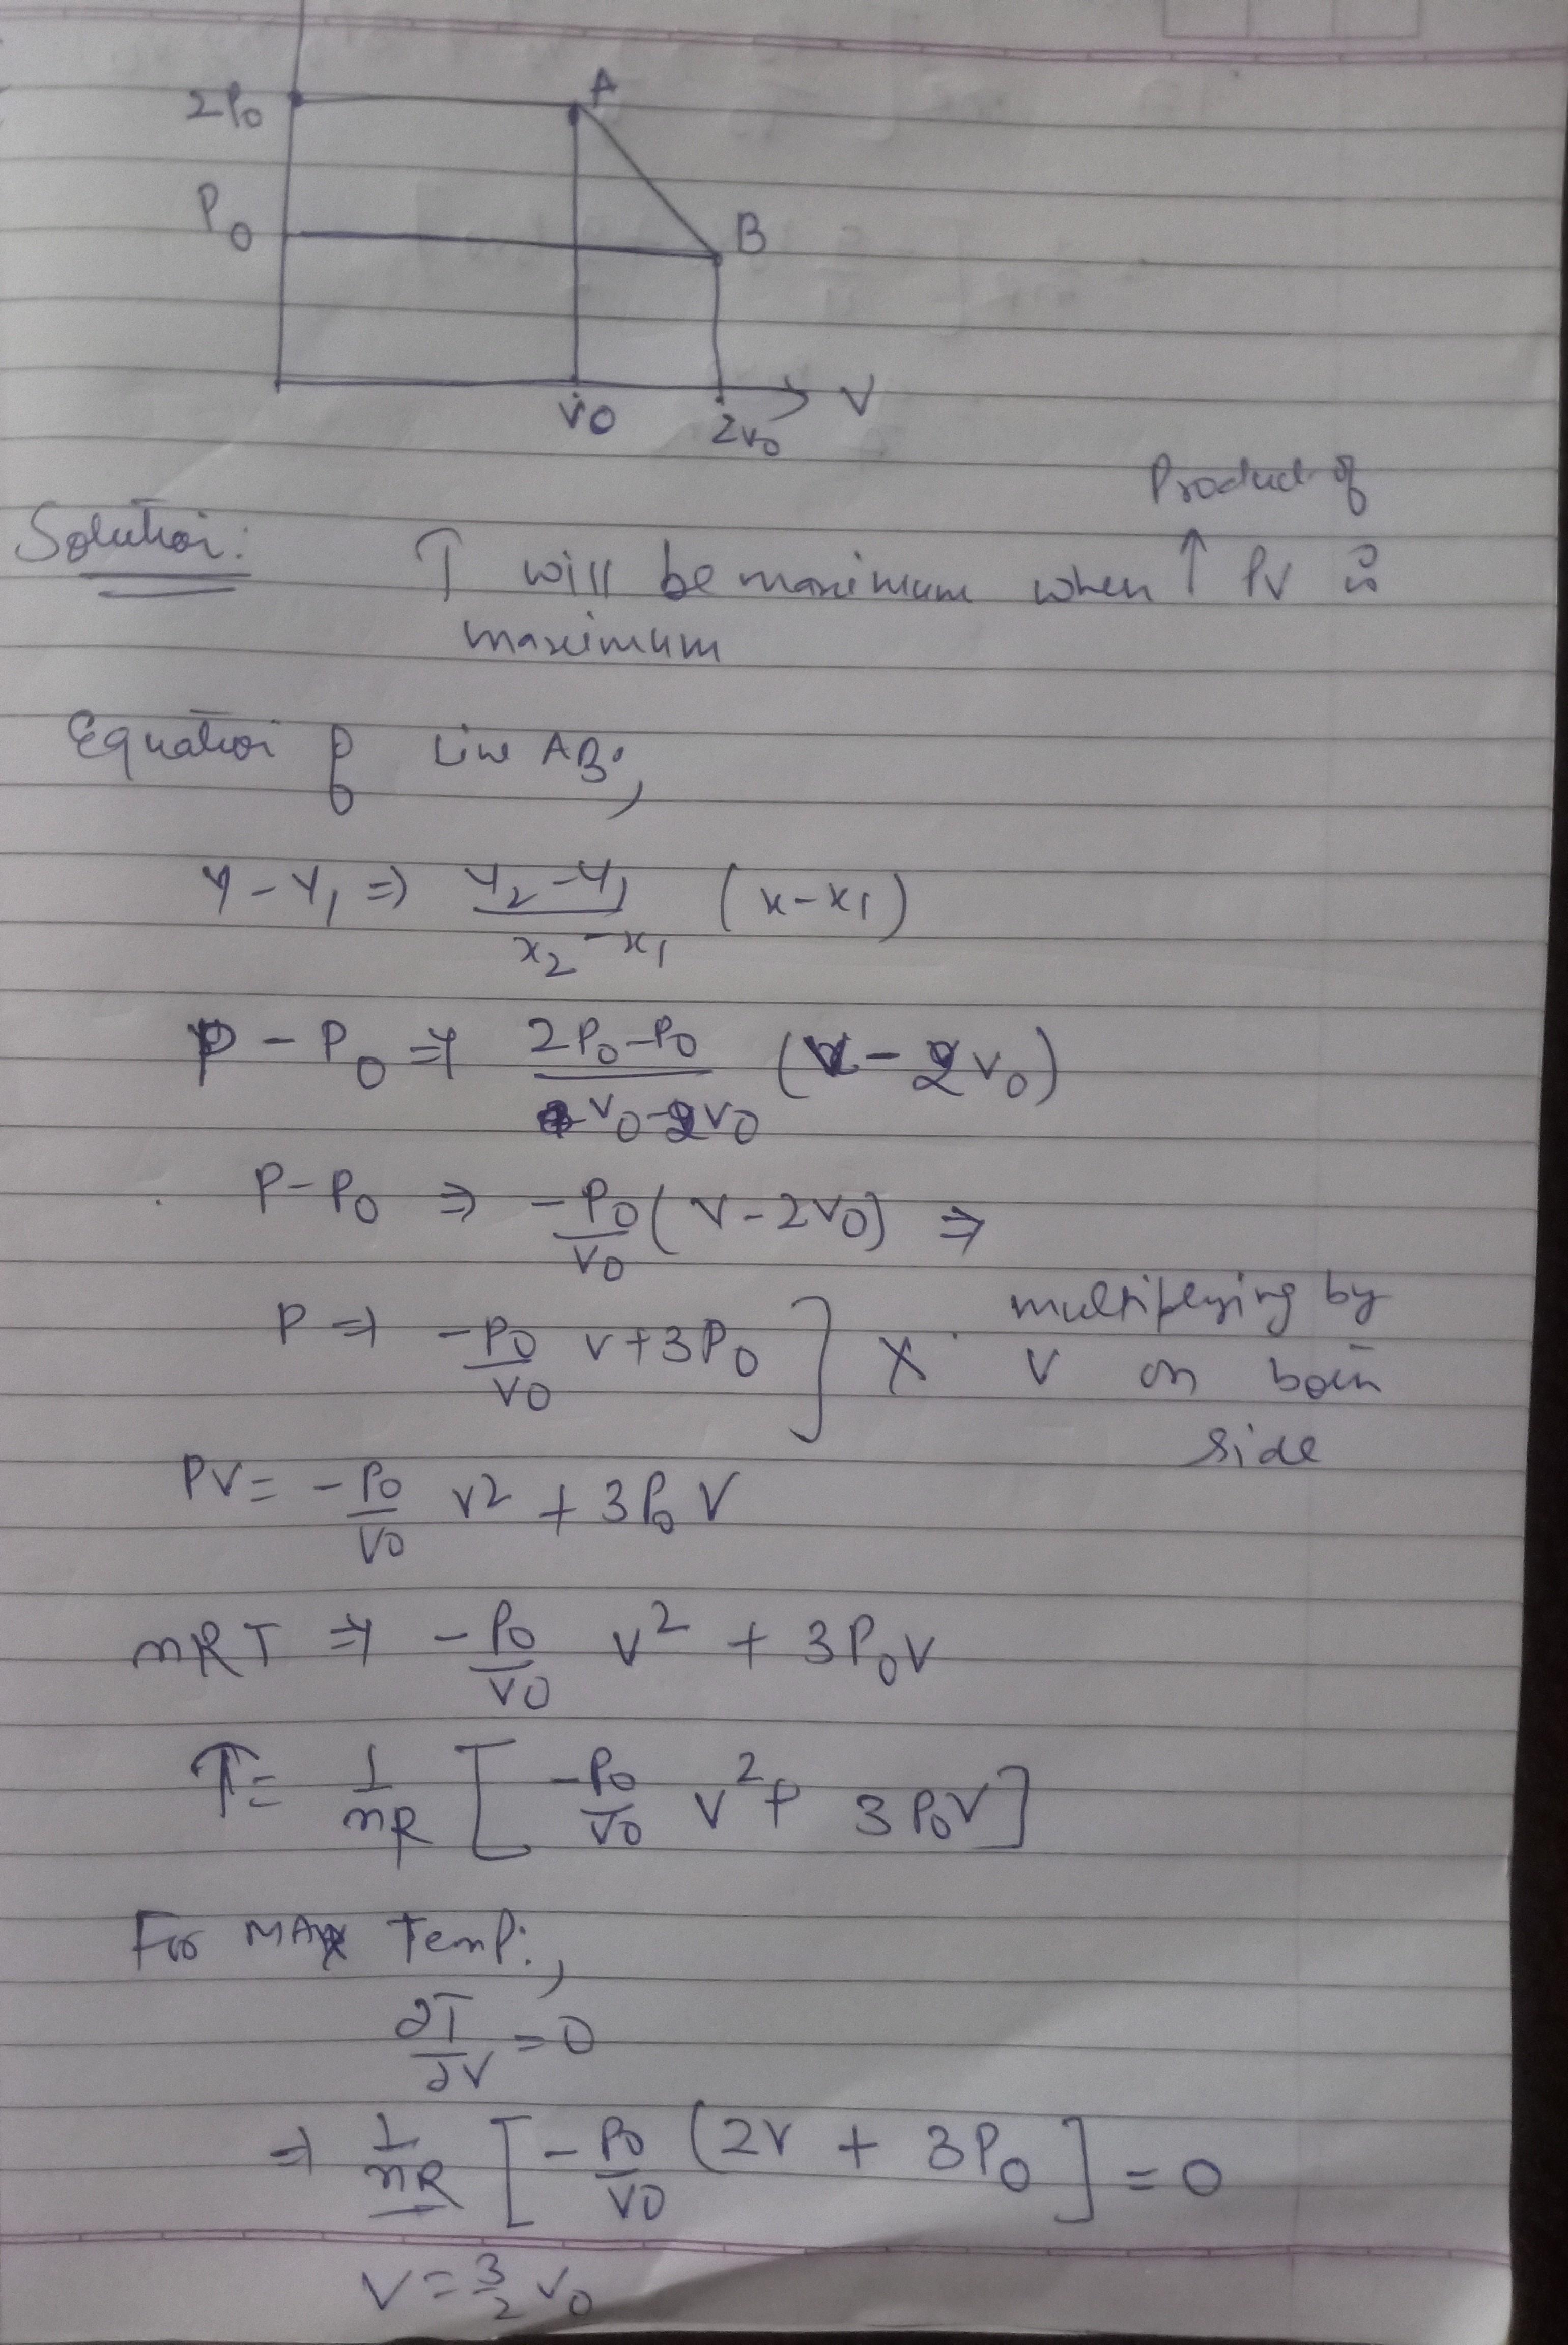 2P₀
A
P₀
B
V₀
2V₀
V
Product of
Solution: T will be maximum when ↑ PV is
maximum
Equation of Line AB;
y - y₁ ⇒ y₂ - y₁ / x₂ - x₁ (x - x₁)
P - P₀ ⇒ 2P₀ - P₀ / V₀ - 2V₀ (V - 2V₀)
P - P₀ ⇒ -P₀/V₀ (V - 2V₀) ⇒
P ⇒ -P₀/V₀ V + 3P₀ } × multiplying by
V on both
side
PV = -P₀/V₀ V² + 3P₀ V
nRT ⇒ -P₀/V₀ V² + 3P₀V
T = 1/nR [ -P₀/V₀ V² + 3P₀V ]
For MAX Temp:,
∂T/∂V = 0
⇒ 1/nR [ -P₀/V₀ (2V + 3P₀ ] = 0
V = 3/2 V₀